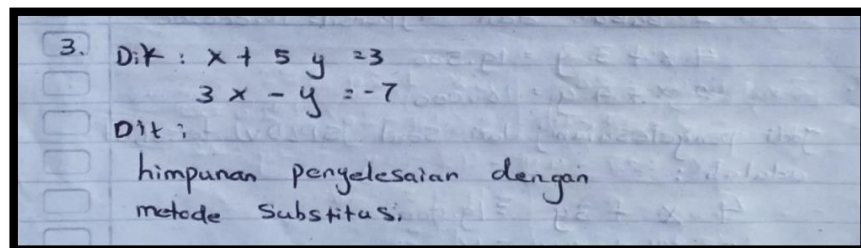 3. Dik : x + 5 y = 3
3 x - y = -7
Dit :
himpunan penyelesaian dengan
metode Substitusi.